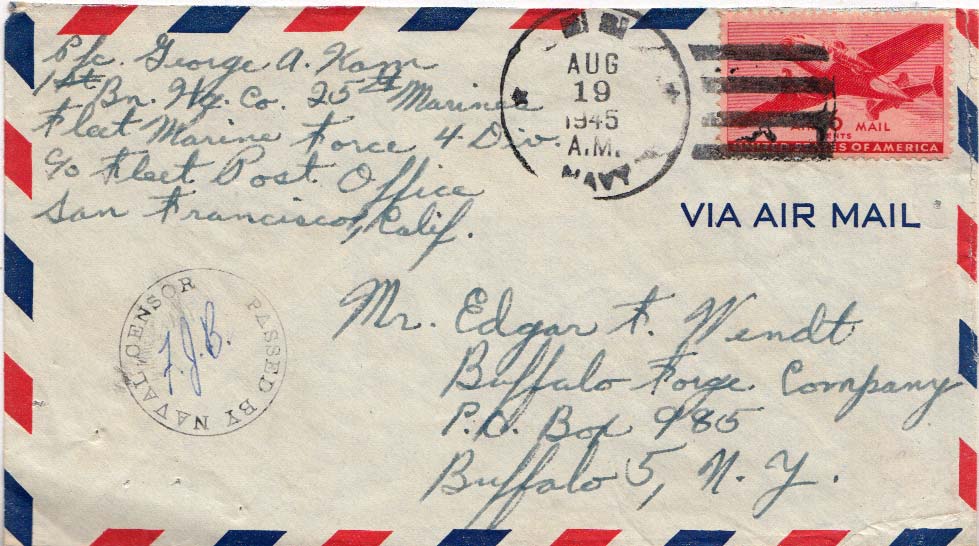 Pfc. George A. Kam
1st Bn. Hq. Co. 25th Marines
Fleet Marine Force 4 Div.
c/o Fleet Post Office
San Francisco, Calif.
AUG
19
1945
A.M.
NAVY
MAIL
CENTS
UNITED STATES OF AMERICA
VIA AIR MAIL
PASSED BY NAVAL CENSOR
F.J.B.
Mr. Edgar F. Wendt
Buffalo Forge Company
P.O. Box 985
Buffalo 5, N.Y.